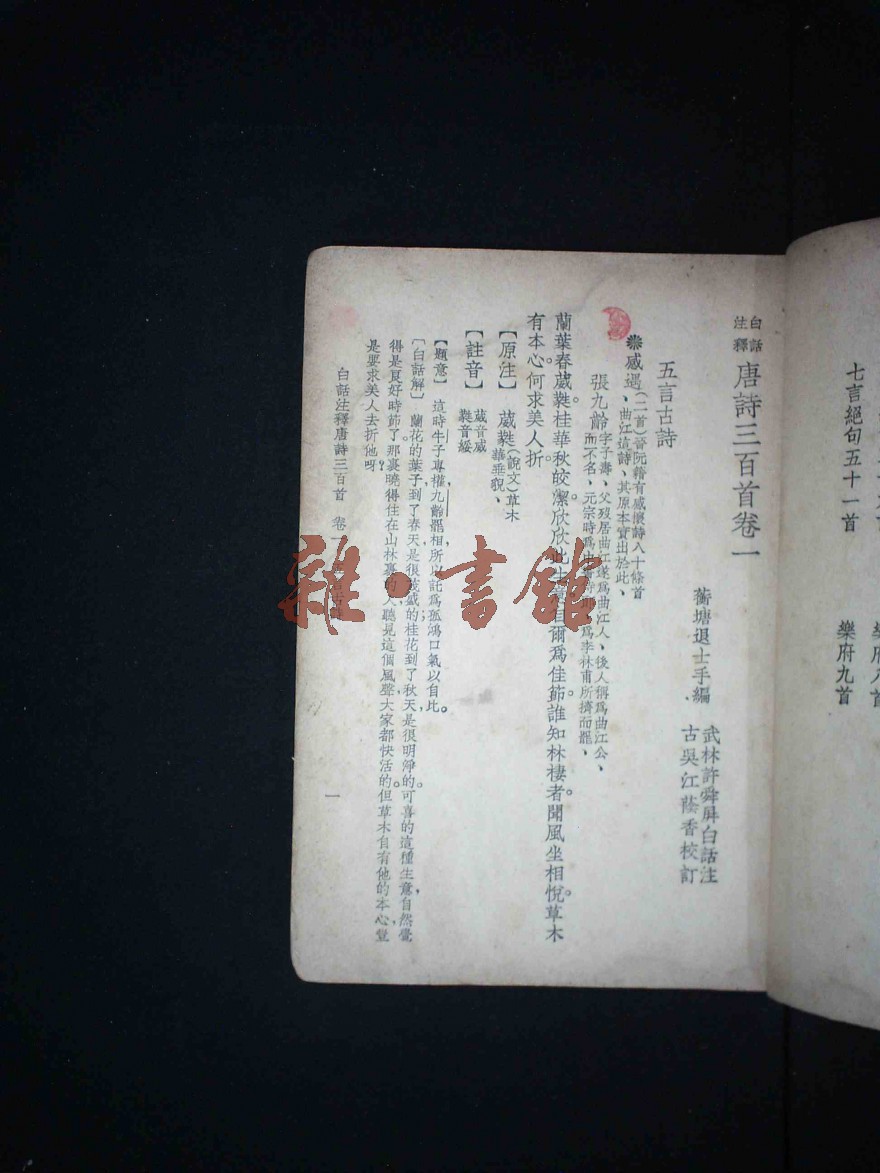 七言絕句五十一首
樂府九首
白話注釋 唐詩三百首卷一
蘅塘退士手編
武林許舜屏白話注
古吳江蔭香校訂
五言古詩
感遇(二首)晉阮籍有感懷詩八十餘首、曲江這詩、其原本實出於此、
張九齡字子壽、父歿居曲江遂爲曲江人、後人稱爲曲江公、而不名、元宗時爲中書侍郎、爲李林甫所擠而罷、
蘭葉春葳蕤桂華秋皎潔。欣欣此生意自爾爲佳節。誰知林棲者。聞風坐相悅。草木
有本心。何求美人折。
【原注】 葳蕤(說文)草木華垂貌、
【註音】 葳音威 蕤音綏
【題意】 這時牛子專權九齡罷相,所以託爲孤鴻口氣以自比。
〔白話解〕 蘭花的葉子,到了春天是很茂盛的;桂花到了秋天是很明淨的。可喜的這種生意,自然覺
得是夏好時節了。那裏曉得住在山林裏的人,聽見這個風聲,大家都快活的。但草木自有他的本心,豈
是要求美人去折他呀?
白話注釋唐詩三百首 卷一
一
雜·書館